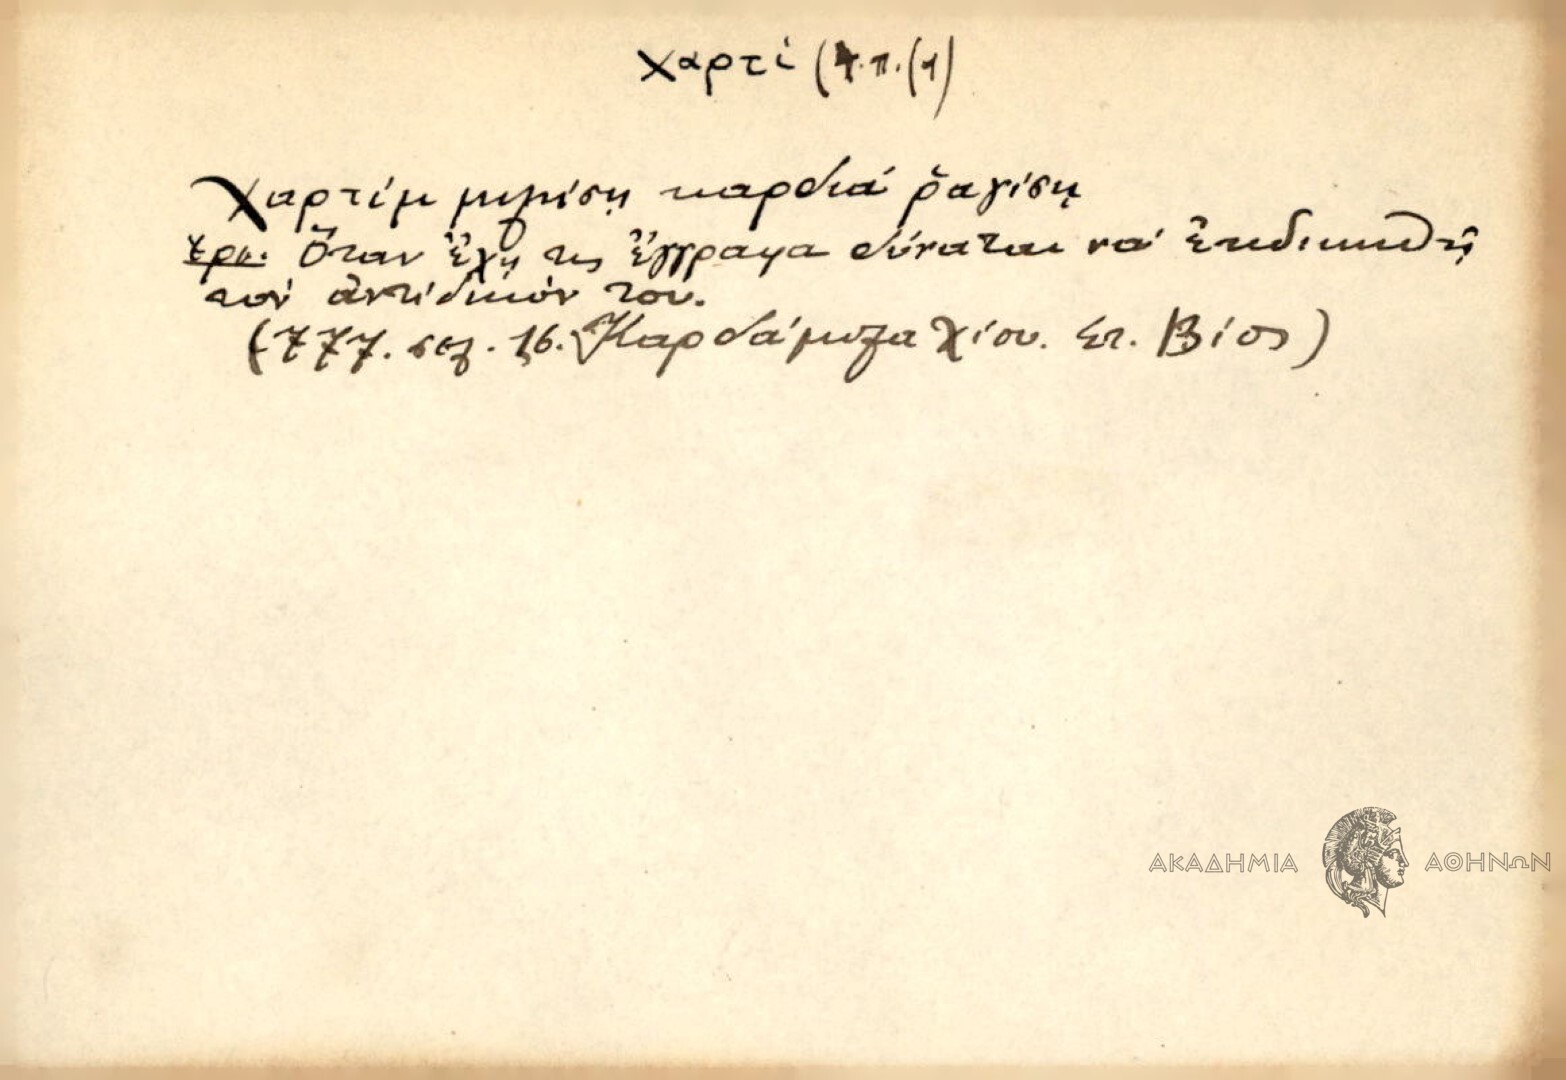 χαρτί
Χαρτίμ μιλήση καρδιά ραγίση
Ερμ. Ὅταν ἔχῃ τις ἔγγραφα δύναται νά ἐκδικηθῇ
τόν ἀντίδικόν του.
(777. σελ. 16. Καρδάμυλα Χίου. Στ. Βίος)
ΑΚΑΔΗΜΙΑ ΑΘΗΝΩΝ